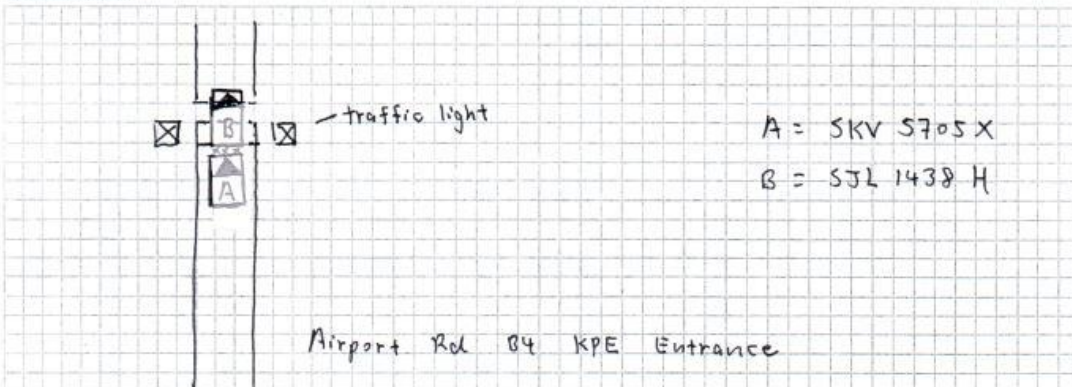 traffic light
B
A
A = SKV 5705 X
B = SJL 1438 H
Airport Rd B4 KPE Entrance